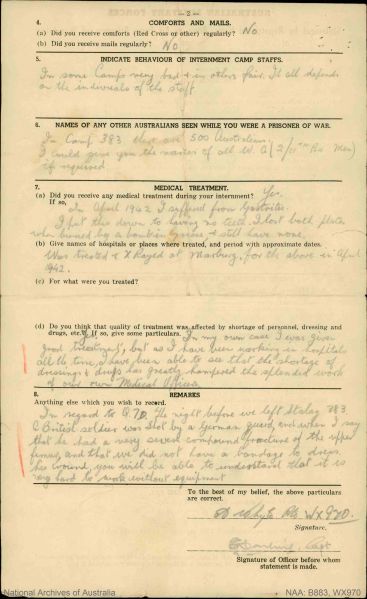 - 2 -
4. COMFORTS AND MAILS.
(a) Did you receive comforts (Red Cross or other) regularly? No
(b) Did you receive mails regularly? No.
5. INDICATE BEHAVIOUR OF INTERNMENT CAMP STAFFS.
In some Camps very bad & in others fair. It all depends
on the individuals of the staff
6. NAMES OF ANY OTHER AUSTRALIANS SEEN WHILE YOU WERE A PRISONER OF WAR.
In Camp 383 there are 500 Australians.
I could give you the names of all W. A. (2/11th Bn Men)
if required.
7. MEDICAL TREATMENT.
(a) Did you receive any medical treatment during your internment? Yes.
If so,
In April 1942 I suffered from Gastritis.
I put this down to having no teeth. I lost both plates
when in Greece & still have none.
(b) Give names of hospitals or places where treated, and period with approximate dates.
Was treated & X Rayed at Marburg, for the above in April
1942.
(c) For what were you treated?
(d) Do you think that quality of treatment was affected by shortage of personnel, dressing and
drugs, etc.? If so, give some particulars. In my own case I was given
good treatment, but as I have been working in hospitals
all the time, I have been able to see that the shortage of
dressings & drugs has greatly hampered the splendid work
of our own Medical Officers.
8. REMARKS
Anything else which you wish to record.
In regard to Q. 7D. The night before we left Stalag 383
a British soldier was shot by a German guard, and when I say
that he had a very severe compound fracture of the upper
femur, and that we did not have a bandage to dress
his wound, you will be able to understand that it is
very hard to work without equipment
To the best of my belief, the above particulars
are correct.
Whyte Pte WX970.
Signature.
Capt
Signature of Officer before whom
statement is made.
National Archives of Australia
NAA: B883, WX970